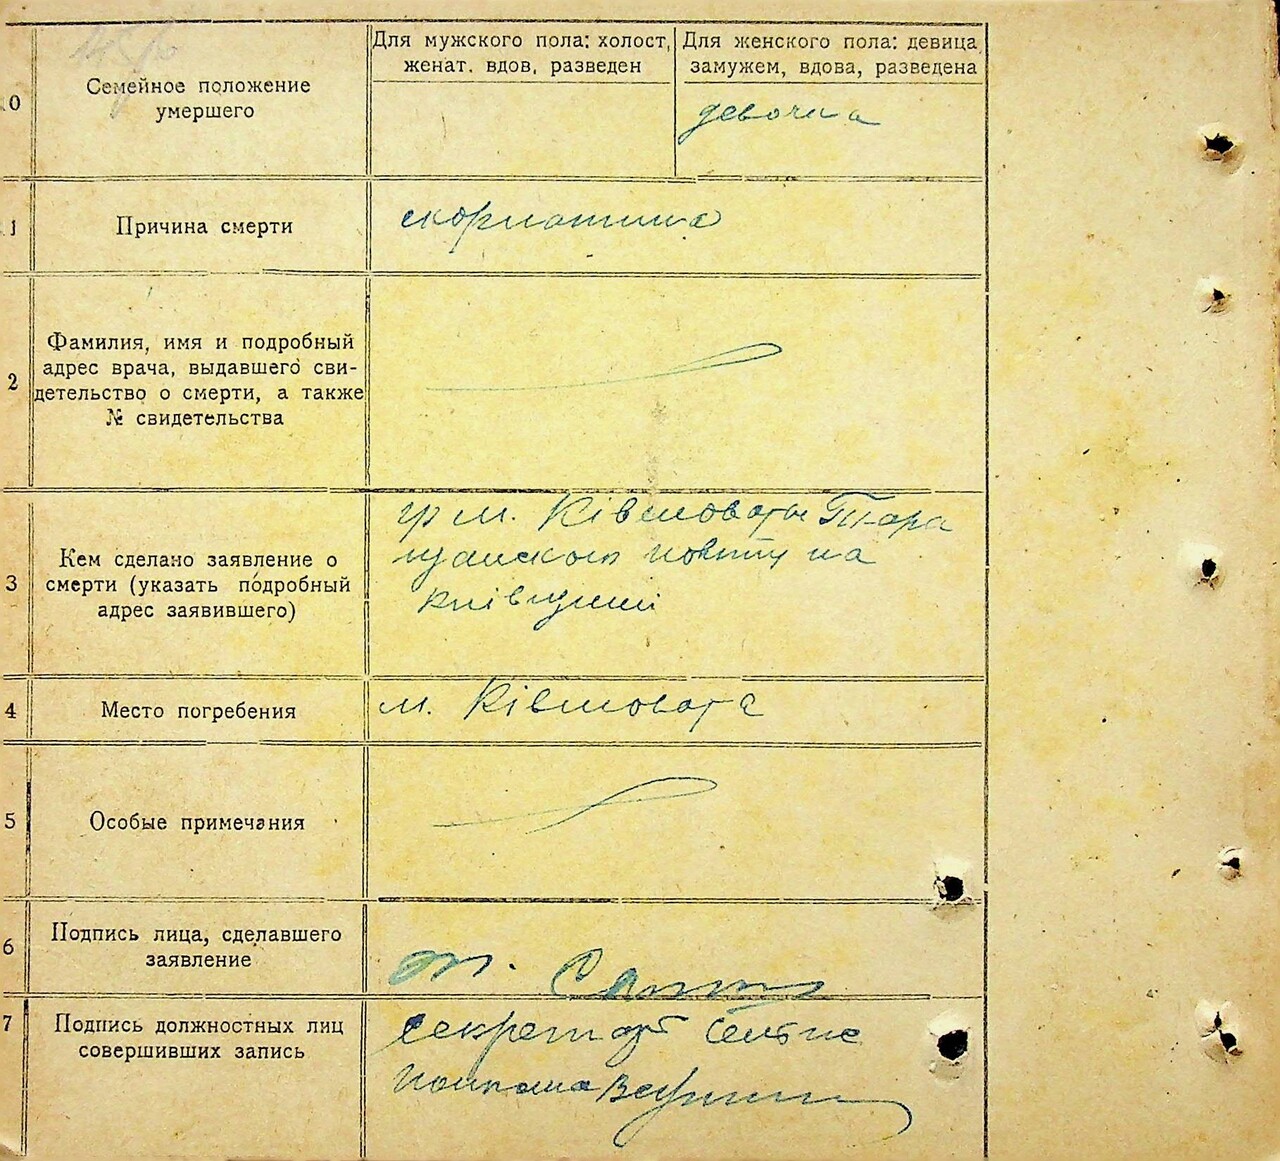 0
Семейное положение
умершего
Для мужского пола: холост,
женат. вдов, разведен
Для женского пола: девица,
замужем, вдова, разведена
девочка
1
Причина смерти
скорлатина
2
Фамилия, имя и подробный
адрес врача, выдавшего сви-
детельство о смерти, а также
№ свидетельства
3
Кем сделано заявление о
смерти (указать подробный
адрес заявившего)
гр м. Ківшовати Тара
щанского повіту на
Київщині
4
Место погребения
м. Ківшовата
5
Особые примечания
6
Подпись лица, сделавшего
заявление
7
Подпись должностных лиц
совершивших запись
секретарь